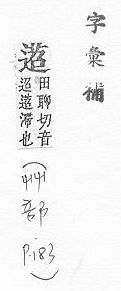 字彙補
田聊切音
迢滯也
(艸部 P.183)